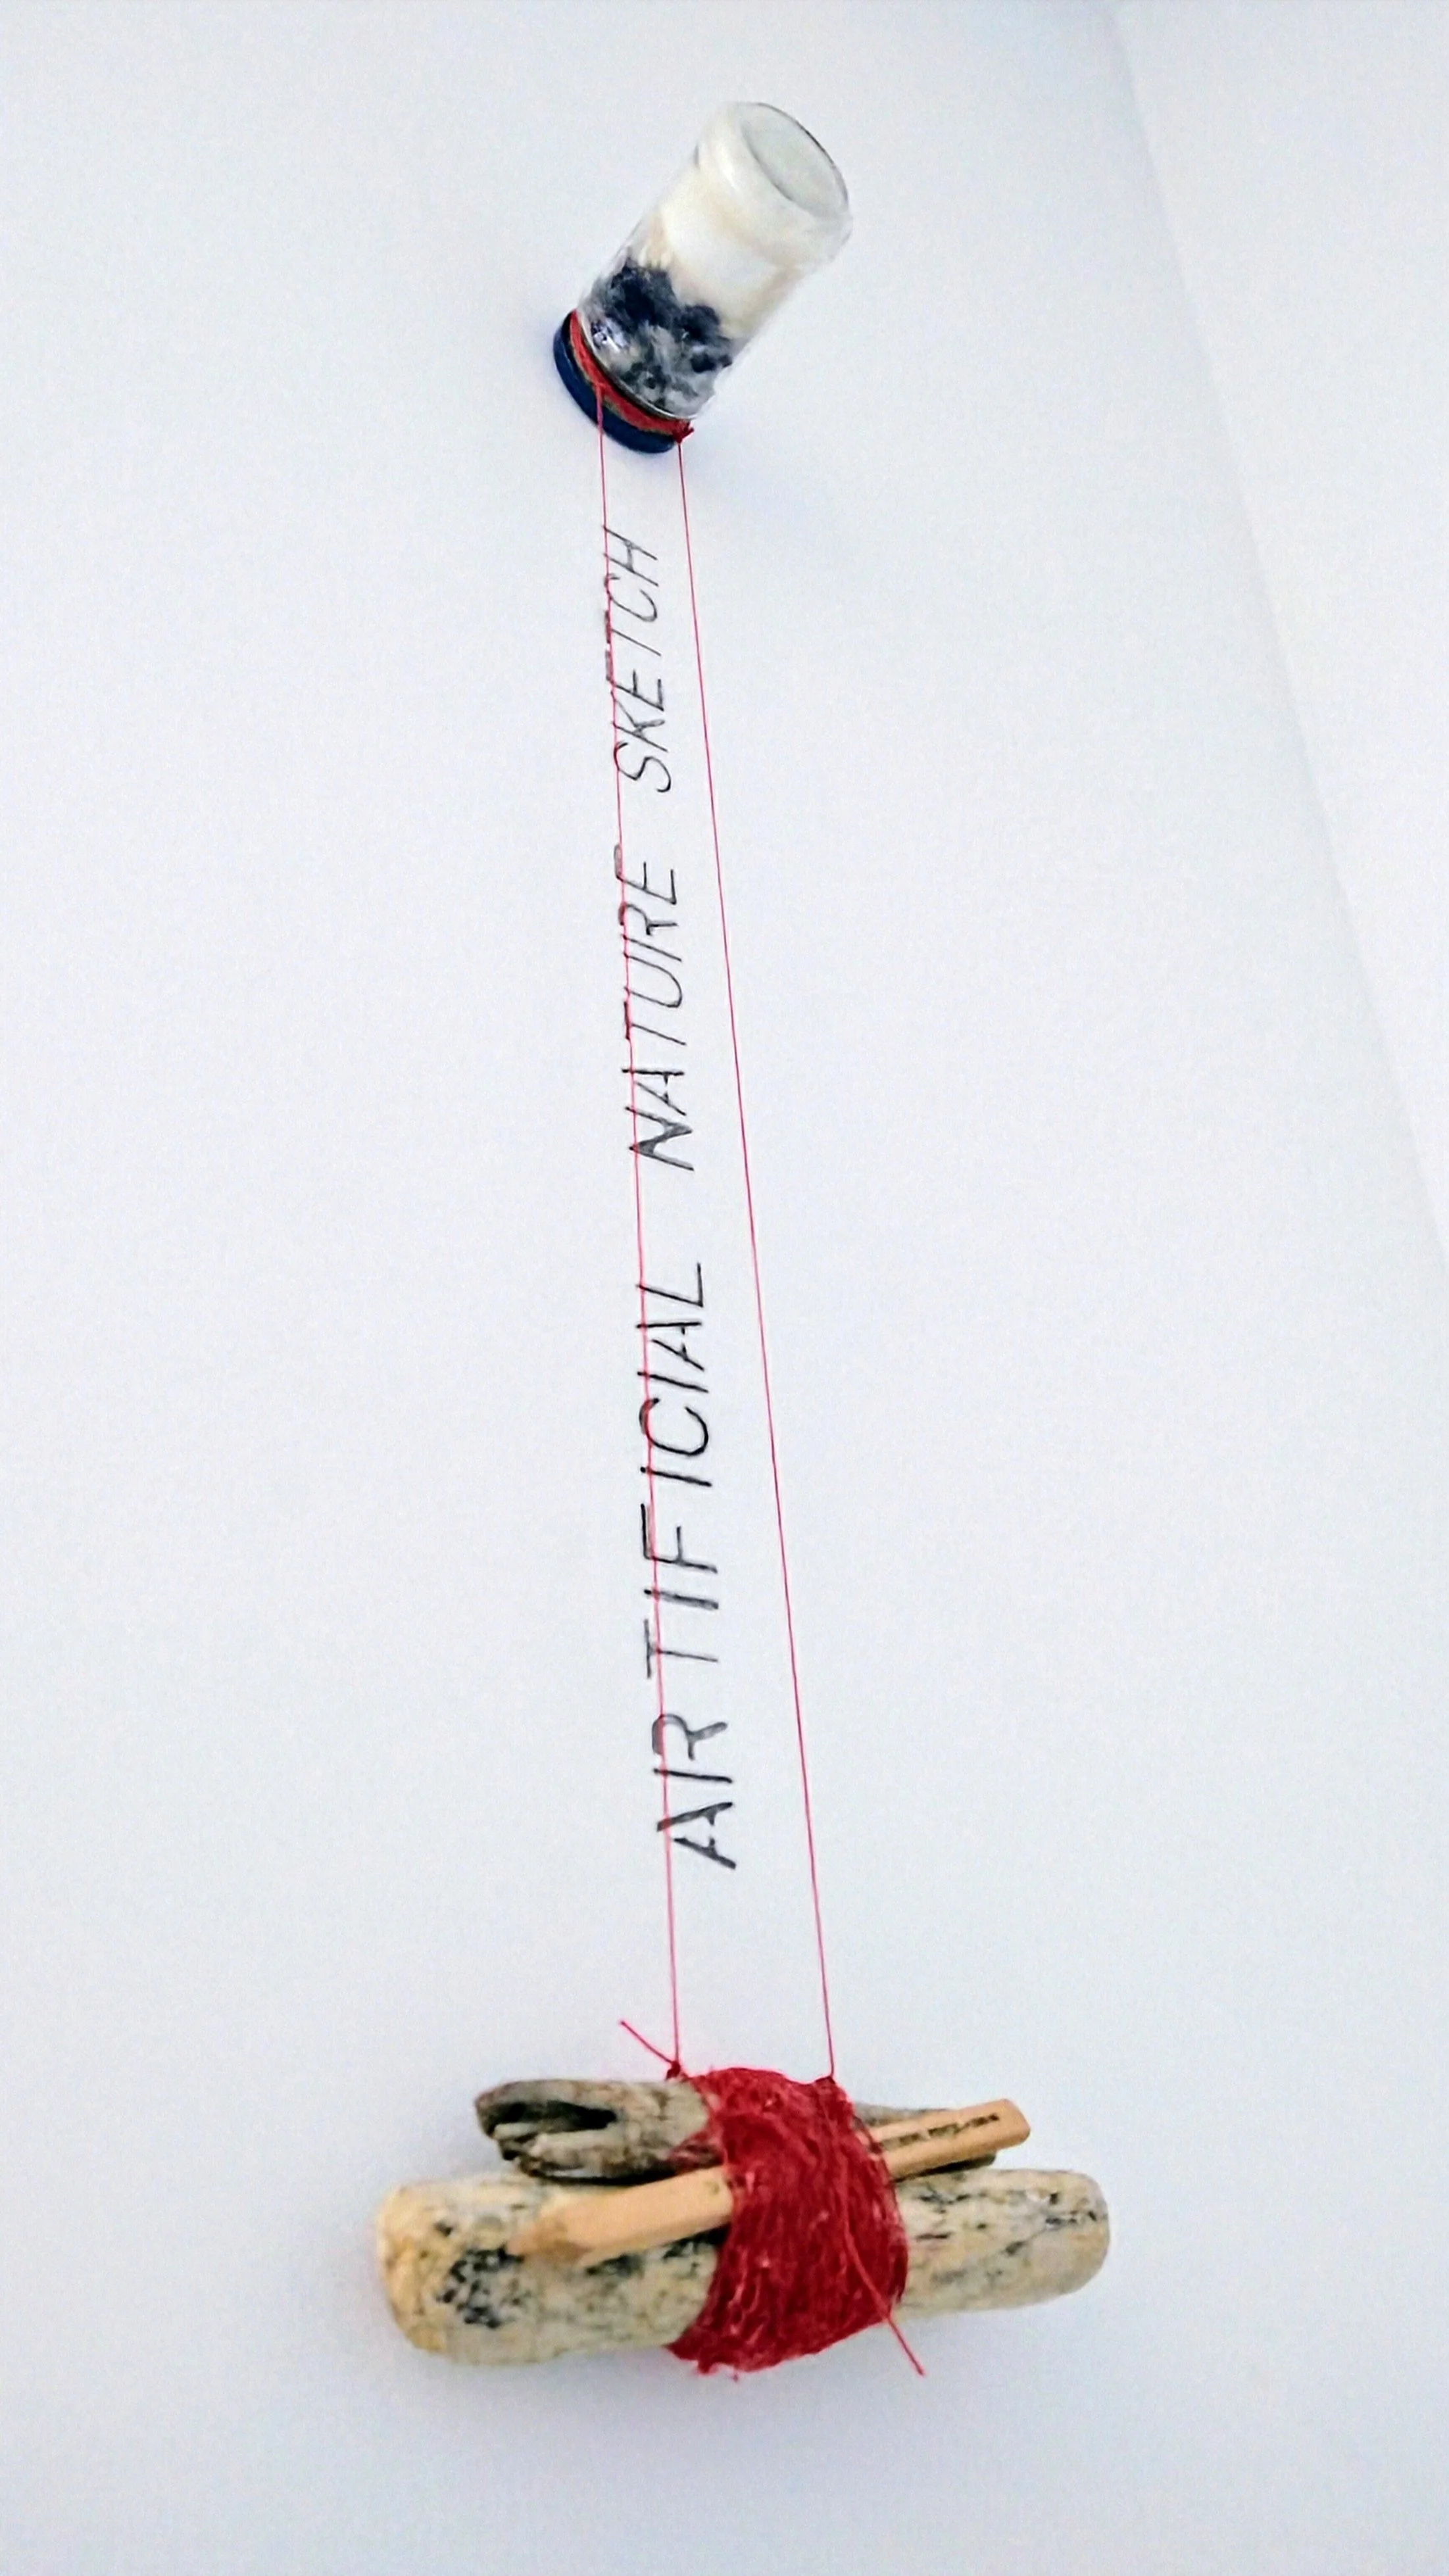 ARTIFICIAL NATURE SKETCH